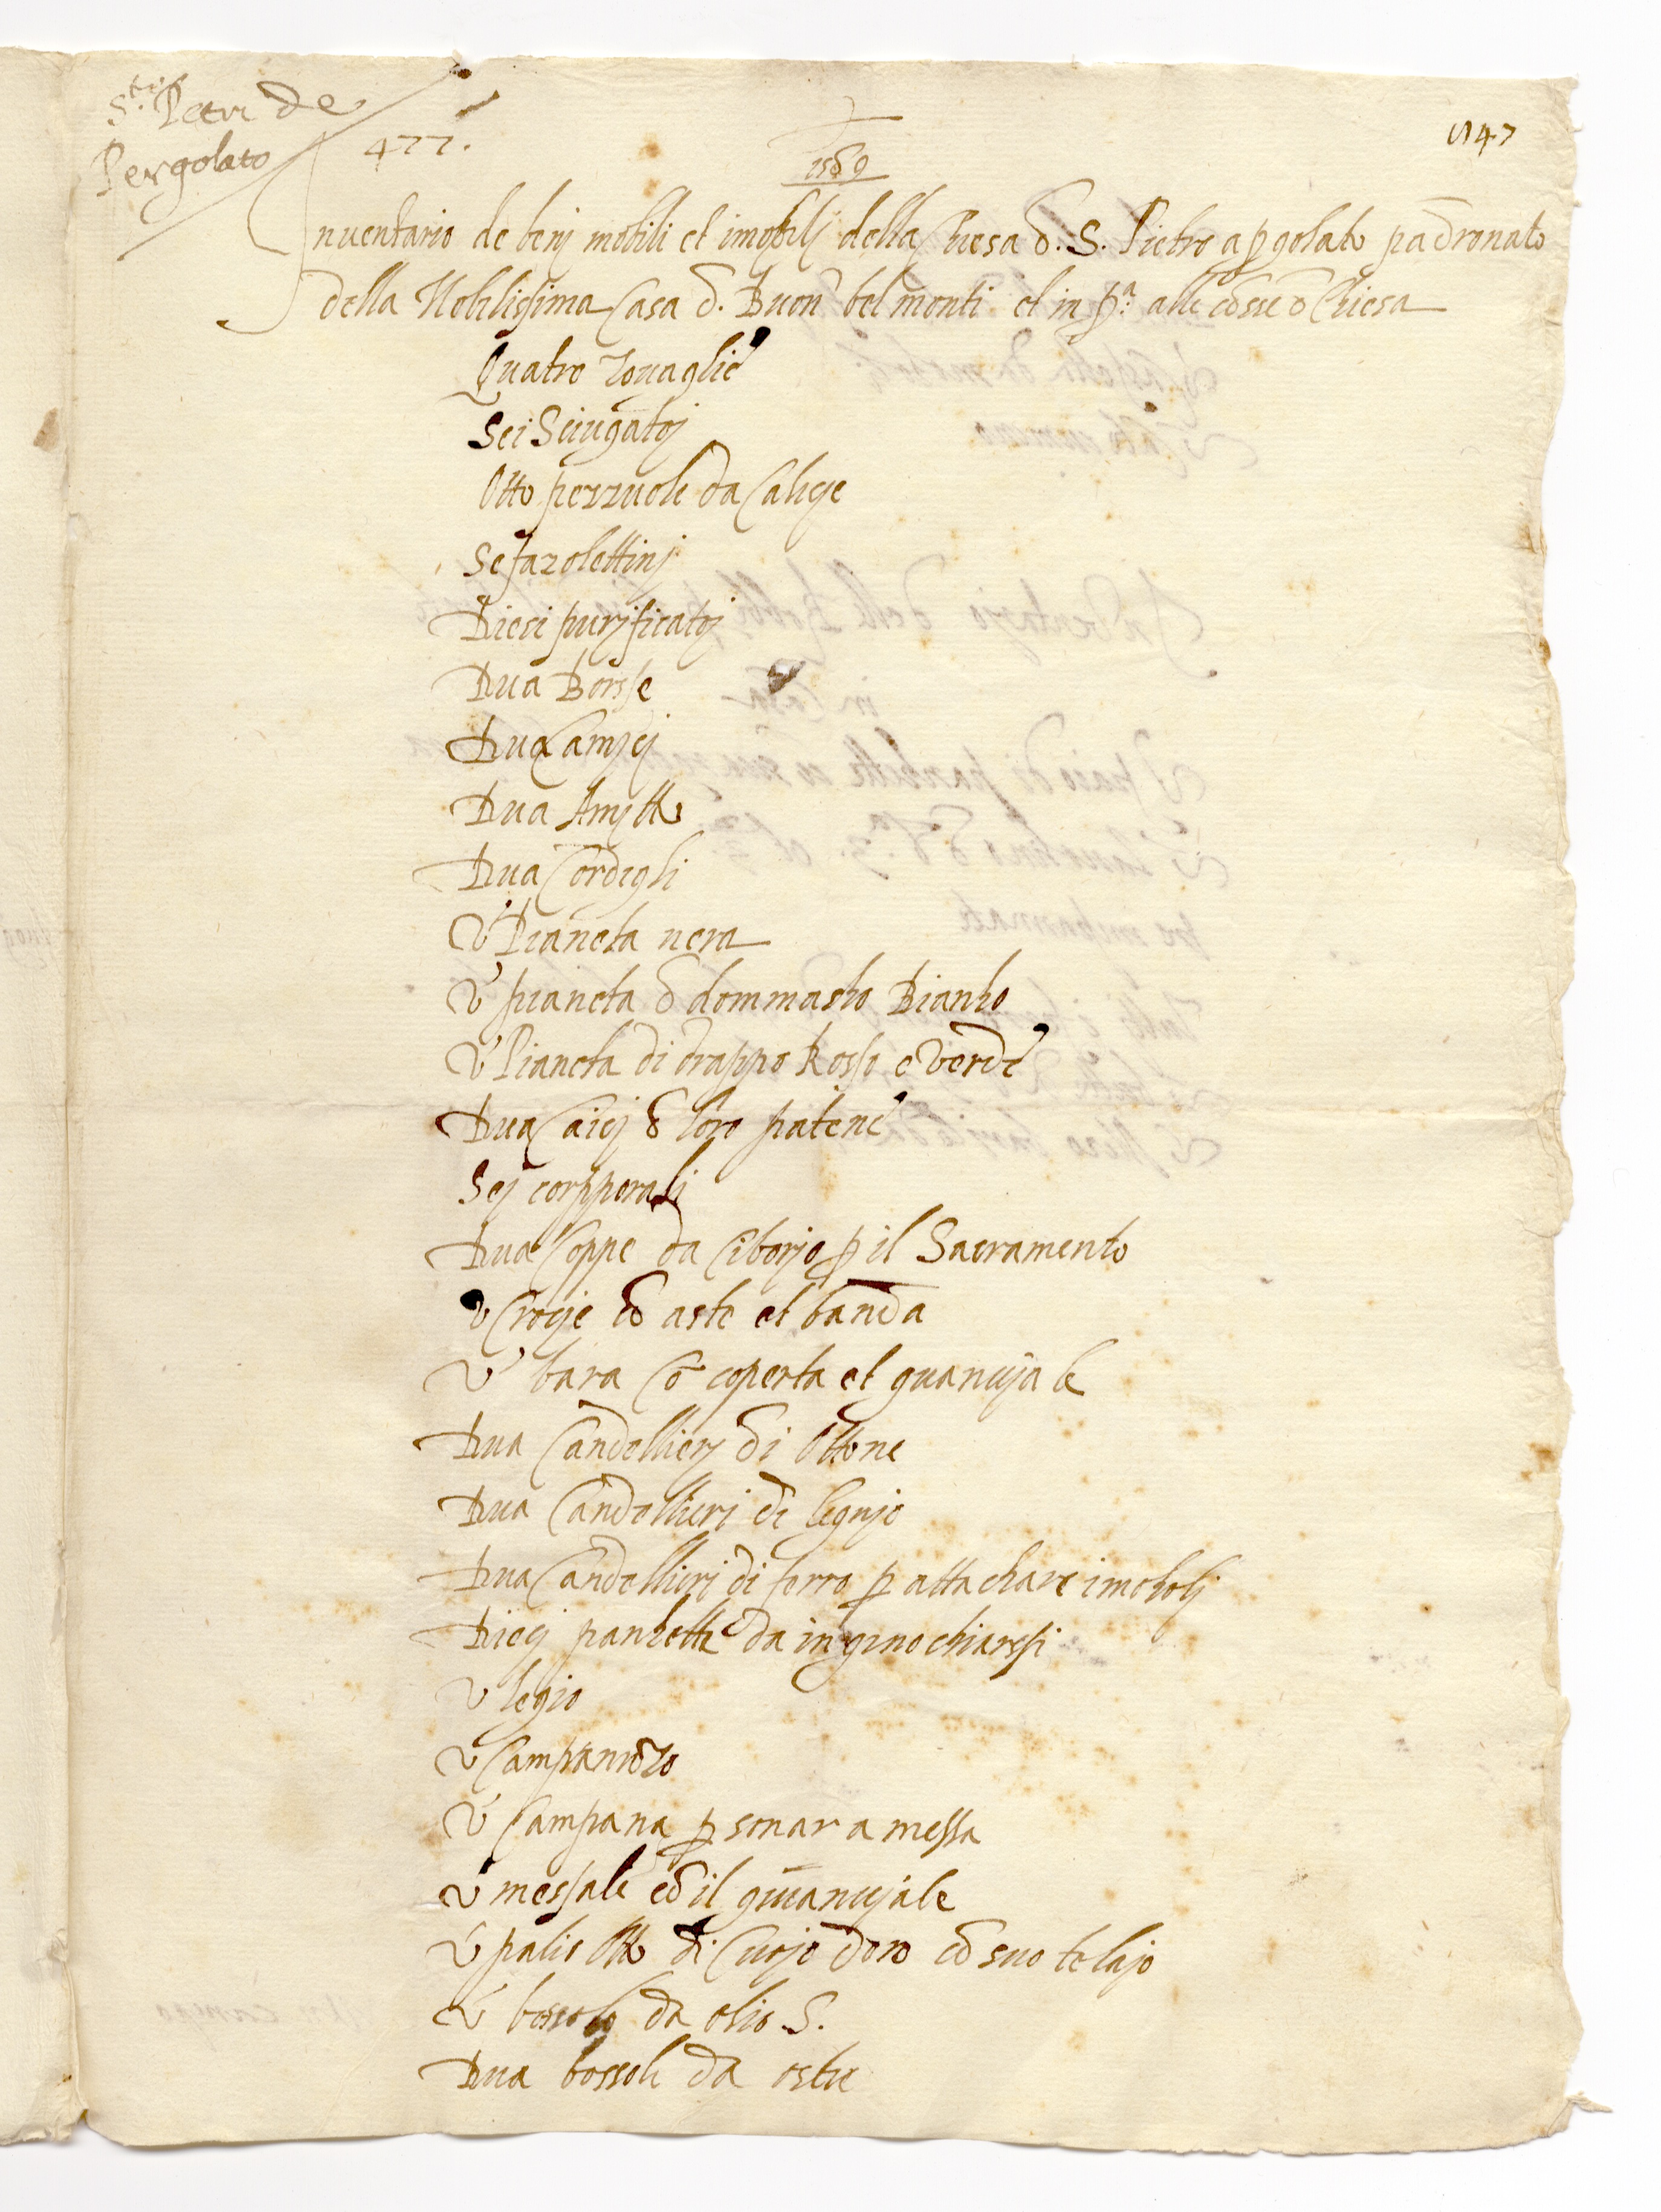 S.ti Petri de
Pergolato
477.
547
1569
Inventario de benj mobili et imobilj della Chiesa d. S. Pietro a pgolato padronato
della Nobilissima Casa d. Buon del monti et in p.a alle cosse d Chiesa
Quatro Tovaglie
Sei Sciugatoj
Otto pezzuole da Calicje
Se fazolettinj
Dieci purjficatoj
Dua Borsse
Dua Camjcj
Dua Amjtti
Dua Cordigli
Vª Pianeta nera
Vª pianeta d dommasho Bianho
Vª Pianeta di drappo Rosso e verde
Dua Caicj & loro patene
Sej corpporalj
Dua Coppe da Ciborjo p il Sacramento
vª Crocje co aste et banda
Vª bara co coperta et guancjale
Dua Candellierj di Ottone
Dua Candellieri di legnjo
Dua Candellieri di ferro p attachare i mocholj
Diecj panhette da inginochiarssi
V legio
V Campanuzo
Vª Campana p sonar a messa
V messale co il guancjale
V paliotto di Cuojo doro co suo telajo
V bossolo da olio S.
Dua bossoli da ostie